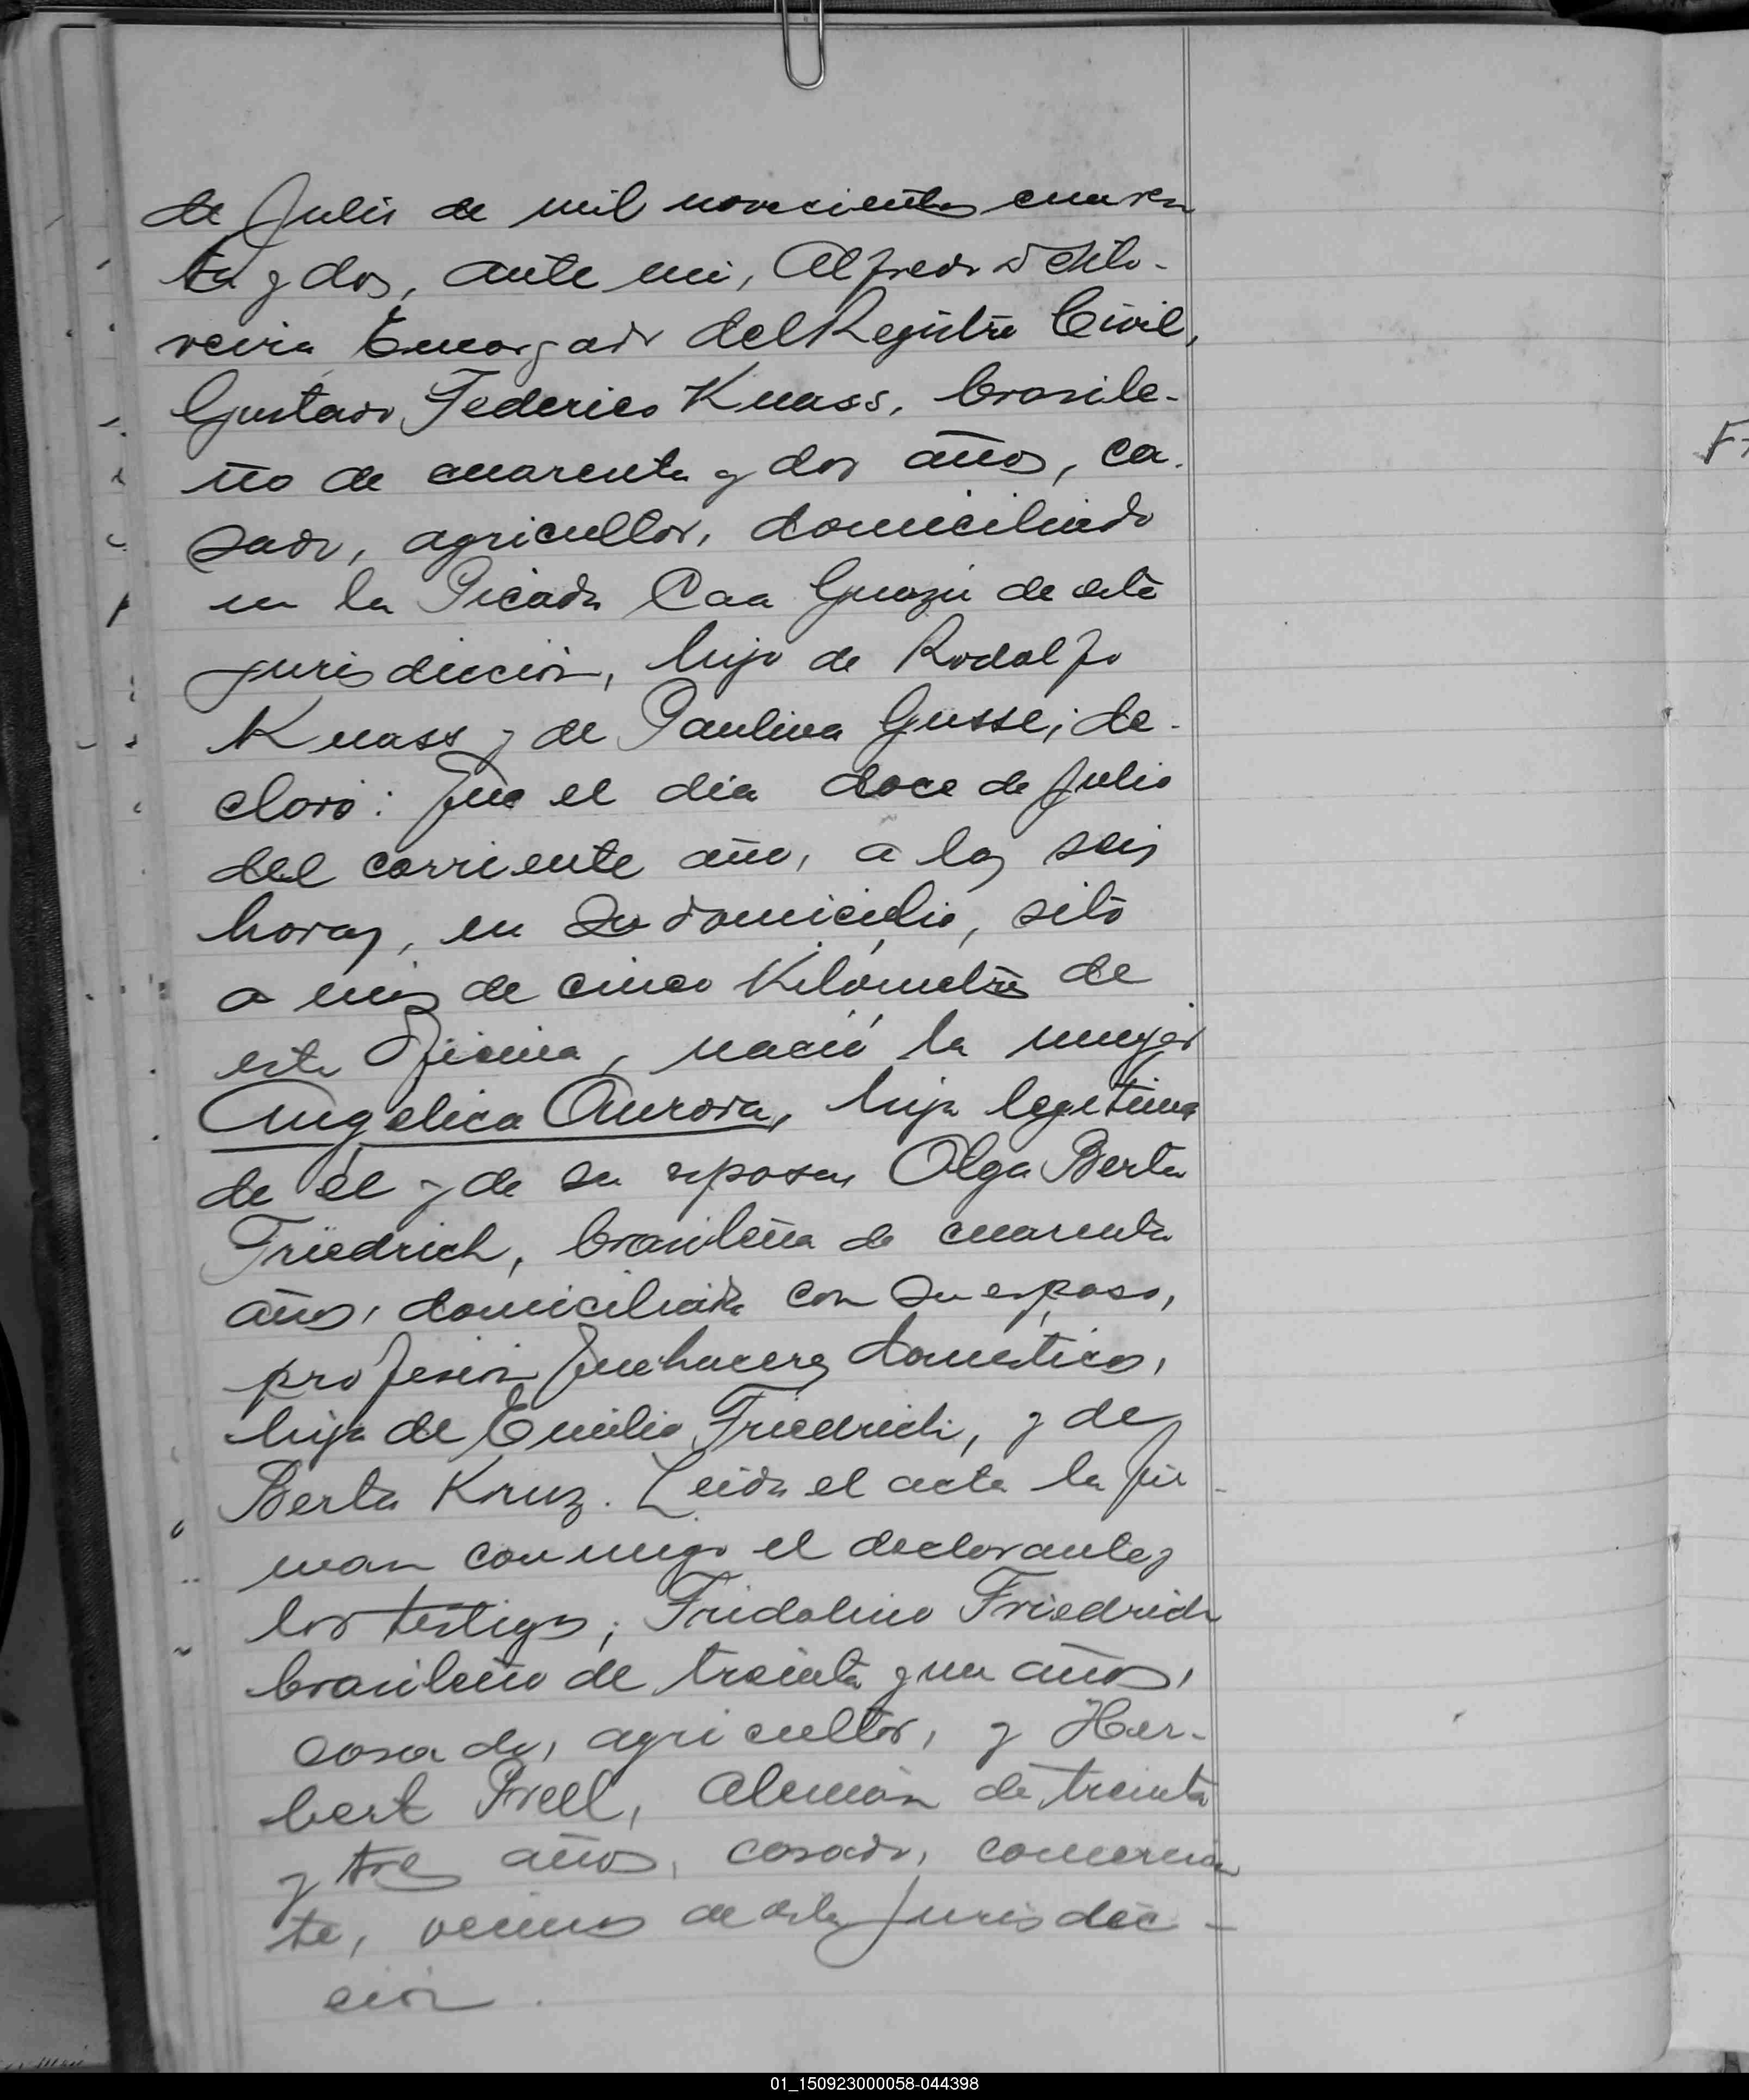 de Julio de mil novecientos cuaren
ta y dos, ante mi, Alfredo
Encargado del Registro Civil,
Gustavo Federico Knass, brasile-
ño de cuarenta y dos años, ca-
sado, agricultor, domiciliado
en la Picada Caa Guazú de esta
jurisdicción, hijo de Rodolfo
Knass y de Paulina Gusse; de-
claró: Que el día doce de Julio
del corriente año, a las seis
horas, en su domicilio, sito
a más de cinco Kilómetros de
esta Oficina, nació la mujer
Angelica Aurora, hija legitima
de él y de su esposa Olga Berta
Friedrich, brasileña de cuarenta
años, domiciliada con su esposo,
profesión quehaceres domesticos,
hija de Emilio Friedrich, y de
Berta Kruz. Leida el acta la fir-
man conmigo el declarante y
los testigos; Fridolino Friedrich
brasileño de treinta y un años,
casado, agricultor, y Her-
bert Prell, Alemán de treinta
y tres años, casado, comercian
te, vecinos de esta Jurisdic-
ción.
01_150923000058-044398